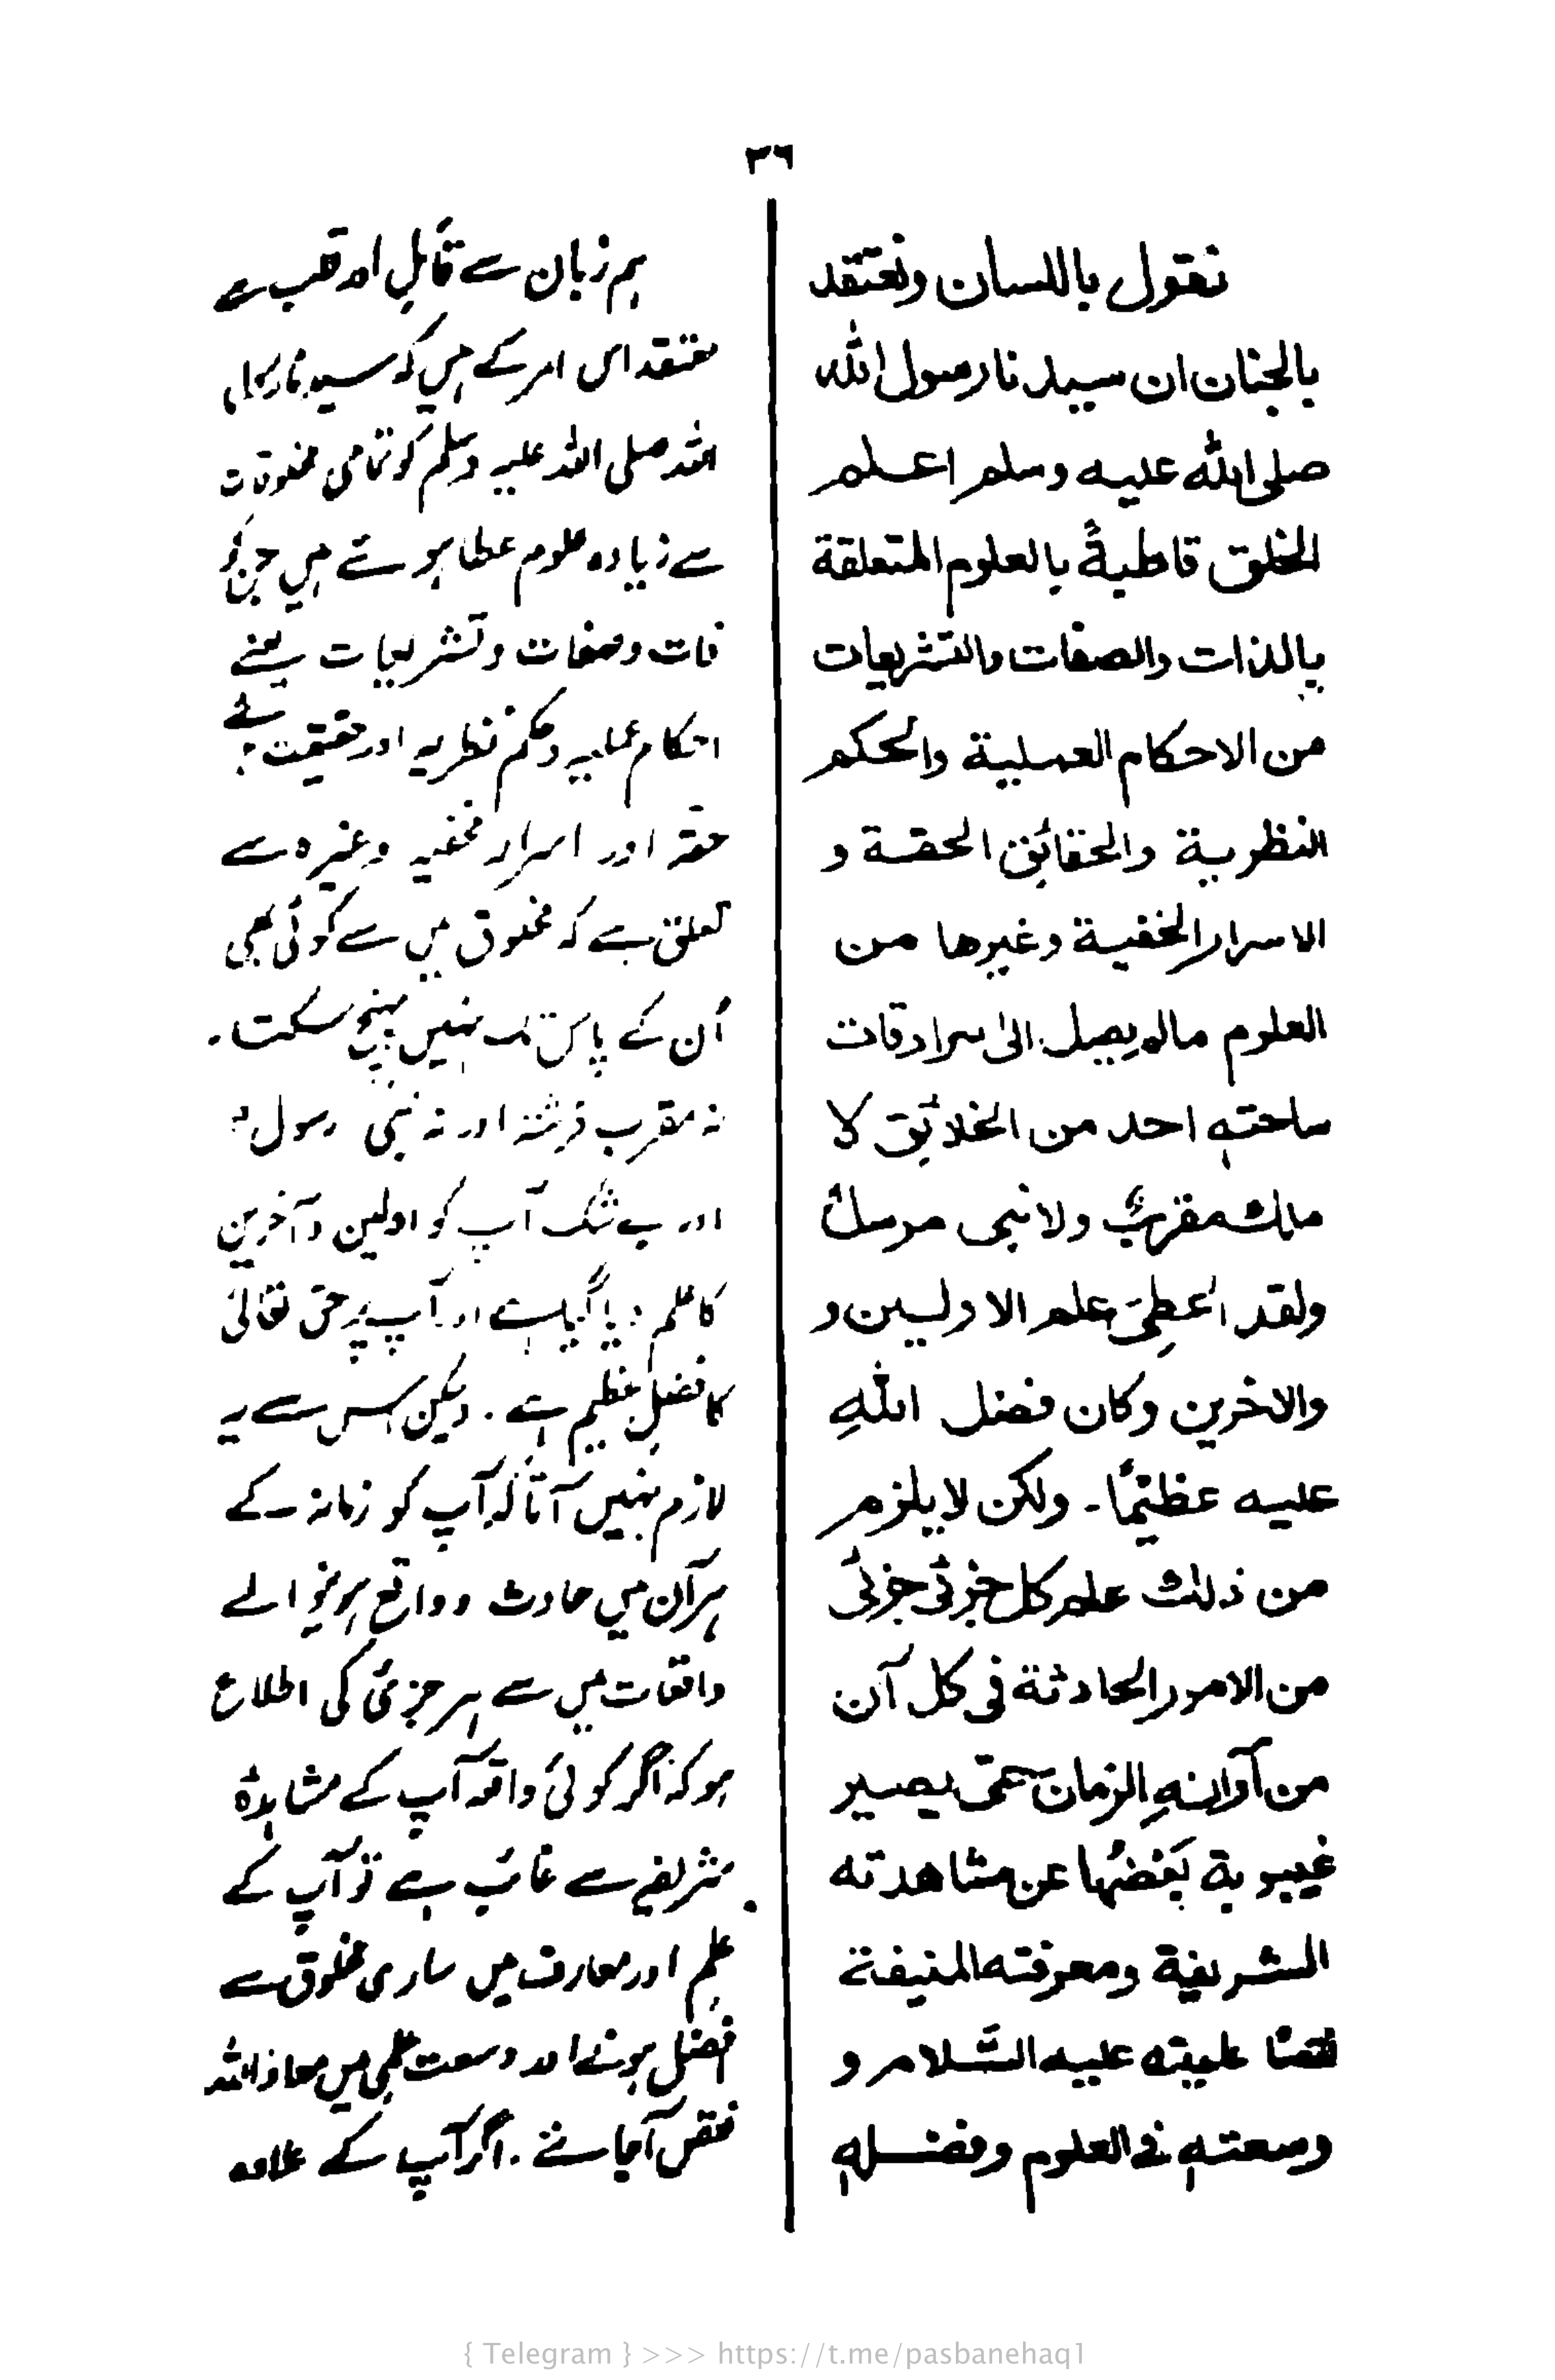 ٣٦
نقول باللسان ونعتقد
بالجنان ان سيدنا رسول الله
صلى الله عليه وسلم اعلم
الخلق قاطبةً بالعلوم المتعلقة
بالذات والصفات والتشريعات
من الاحكام العملية والحكم
النظرية والحقائق الحقة و
الاسرار الخفية وغيرها من
العلوم مالم يصل الىٰ سرادقات
ساحته احد من الخلائق لا
ملك مقربٌ ولا نبى مرسلٌ
ولقد اُعطِىَ علم الاولين و
والاخرين وكان فضل اللهِ
عليه عظيمًا۔ ولكن لا يلزم
من ذلك علم كل جزئى جزئى
من الامور الحادثة فى كل آن
من آوانهِ الزمان حتى يصير
غيبوبة بَعْضُها عن مشاهدته
الشريفة ومعرفته المنيفة
باعلميته عليه السَّلام و
وسعتهٖ فى العلوم وفضلهٖ
ہم زبان سے قائل اور قلب سے
معتقد اس امر کے ہیں کہ سیدنا رسول
اللہ صلی اللہ علیہ وسلم کو تمامی مخلوقات
سے زیادہ علوم عطا ہوئے ہیں جن کو
ذات وصفات وتشریعات یعنے
احکام عملیہ وحکم نظریہ اور حقیقت ہائے
حقہ اور اسرار مخفیہ وغیرہ سے
تعلق ہے کہ مخلوق میں سے کوئی بھی
اُن کے پاس تک نہیں پہنچ سکتا۔
نہ مقرب فرشتہ اور نہ نبی رسول؛
اور بے شک آپ کو اولین و آخرین
کا علم دیا گیا ہے اور آپ پر حق تعالیٰ
کا فضل عظیم ہے۔ ولیکن اس سے یہ
لازم نہیں آتا کہ آپ کو زمانہ کے
ہر آن میں حادث و واقع ہونیوالے
واقعات میں سے ہر جزئی کی اطلاع
ہو کہ اگر کوئی واقعہ آپ کے مشاہدہٗ
شریفہ سے غائب رہے تو آپ کے
علم اور معارف میں ساری مخلوق سے
افضل ہونے اور وسعت علمی میں معاذ اللہ
نقص آجائے۔ اگر آپ کے علاوہ
{ Telegram } >>> https://t.me/pasbanehaq1